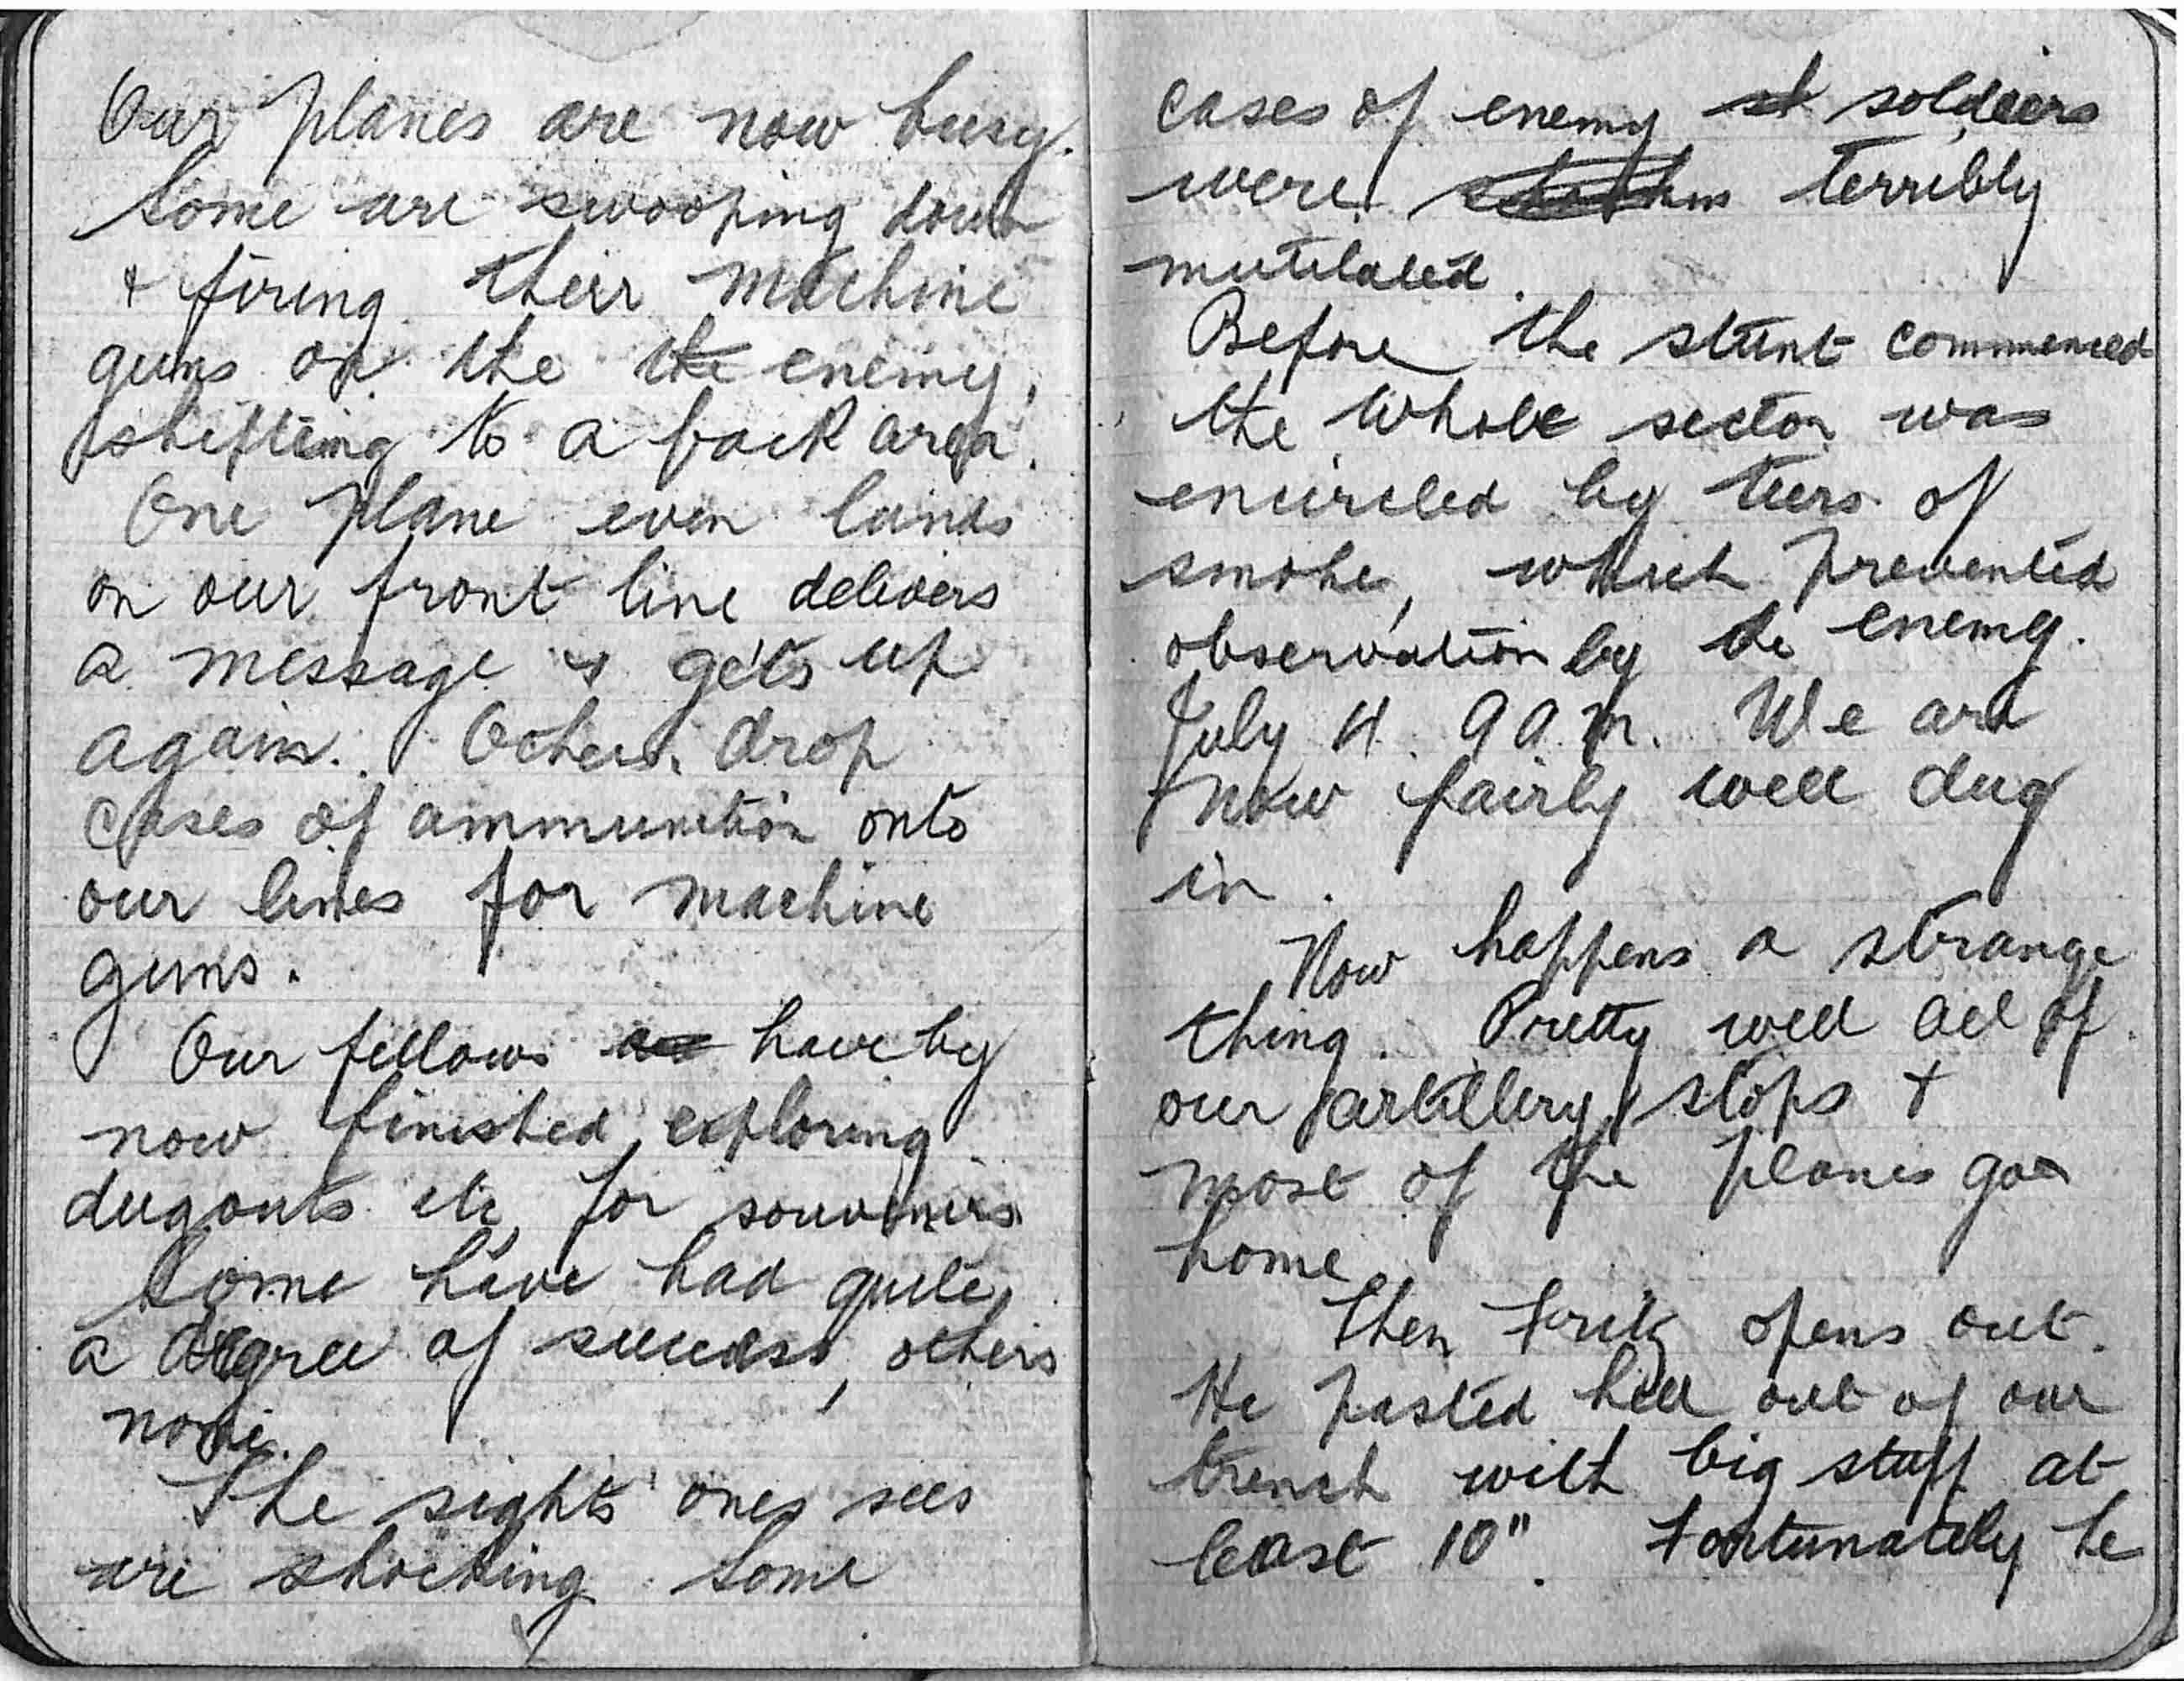 Our planes are now busy.
Some are swooping down
& firing their machine
guns on the the enemy,
shifting to a back area.
One plane even lands
on our front line delivers
a message & gets up
again. Others drop
cases of ammunition onto
our lines for machine
guns.
Our fellows are have by
now finished exploring
dugouts etc, for souvenirs.
Some have had quite
a degree of success, others
none.
The sights ones sees
are shocking. Some
cases of enemy st soldiers
were terribly
mutilated.
Before the stunt commenced
the whole sector was
encircled by tiers of
smoke, which prevented
observation by the enemy.
July 4. 9 a.m. We are
now fairly well dug
in.
Now happens a strange
thing. Pretty well all of
our artillery stops &
most of the planes go
home.
Then Fritz opens out.
He pasted hell out of our
trench with big stuff at
least 10". Fortunately he